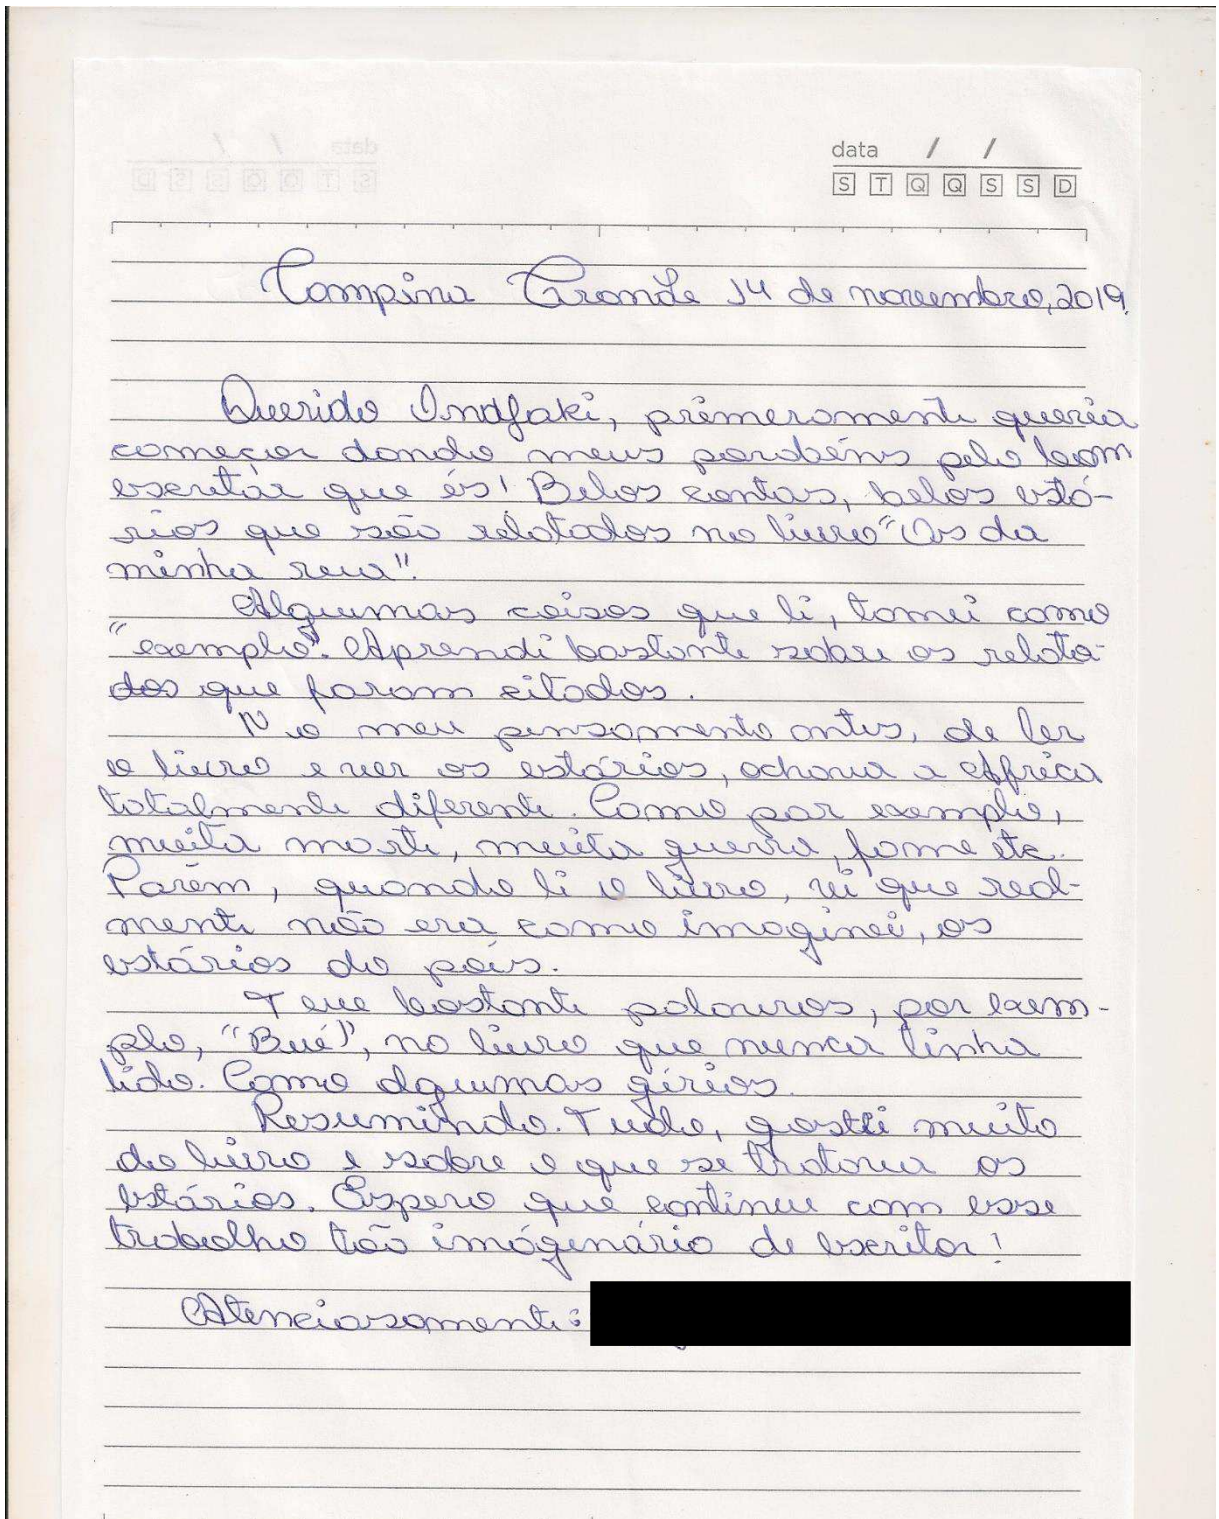 data / /
S T Q Q S S D
Campina Grande 14 de novembro, 2019.
Querido Ondjaki, primeramente queria
começar dando meus parabéns pelo bom
escritor que és! Belos contos, belas estó-
rias que são relatados no livro "Os da
minha rua".
Algumas coisas que li, tomei como
"exemplo". Aprendi bastante sobre os relata-
dos que foram citados.
No meu pensamento antes, de ler
o livro e ver as estórias, achava a África
totalmente diferente. Como por exemplo,
muita morte, muita guerra, fome etc.
Porém, quando li o livro, vi que real-
mente não era como imaginei, as
estórias do país.
Teve bastante palavras, por exem-
plo, "Bué", no livro que nunca tinha
lido. Como algumas gírias.
Resumindo. Tudo, gostei muito
do livro e sobre o que se tratava as
estórias. Espero que continue com esse
trabalho tão imáginário de escritor!
Atenciosamente: